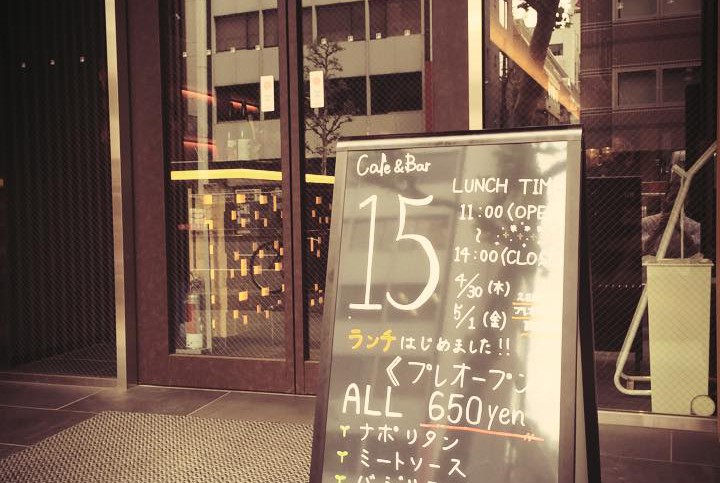 Cafe & Bar
15
LUNCH TIM
11:00 (OPE
~
14:00 (CLOS
4/30 (木)
5/1 (金)
ランチはじめました!!
《プレオープン
ALL 650yen
ナポリタン
ミートソース